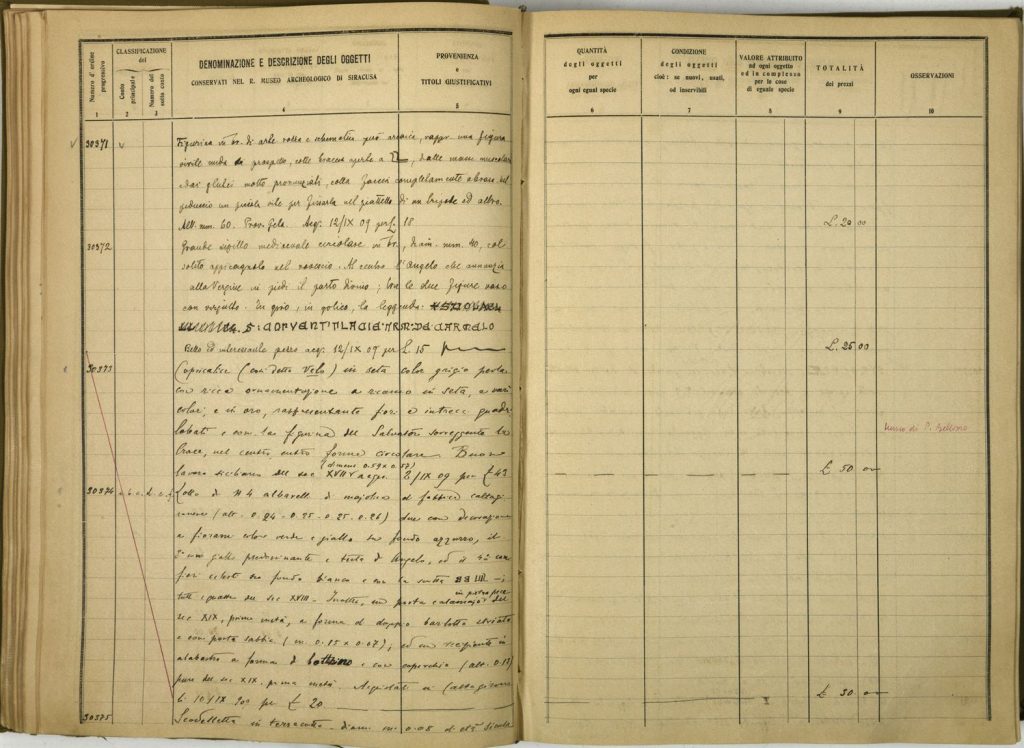 Numero d'ordine progressivo
CLASSIFICAZIONE
del
Conto principale
Numero del sotto conto
DENOMINAZIONE E DESCRIZIONE DEGLI OGGETTI
CONSERVATI NEL R. MUSEO ARCHEOLOGICO DI SIRACUSA
PROVENIENZA
e
TITOLI GIUSTIFICATIVI
1 2 3 4 5
30371 Figurina in br. di arte rozza e schematica può arcaica, rappr. una figura
virile nuda di prospetto, colle braccia aperte a
dai glutei molto pronunziati, colla faccia completamente abrasa. nel
peduccio un piccolo vite per fissarla nel piattello di un
Alt. mm. 60. Prov. Gela. Acq. 12/IX 09 per L. 18
30372 Grande sigillo medioevale circolare in br., diam. mm. 40, col
solito appiccagnolo nel rovescio. Al centro l'Angelo che annunzia
alla Vergine in piedi il parto divino; tra le due figure vaso
con virgulto. In giro, in gotico, la leggenda
S: CONVENT
Bello ed interessante pezzo acq. 12/IX 09 per L. 15
30373 Copricalice (così detto Velo) in seta color grigio perla
con ricca ornamentazione a ricamo in seta, a vari
colori, e in oro, rappresentante fiori e intrecci quadri
lobati e con la figurina del Salvatore sorreggente la
Croce, nel centro, entro forma circolare. Buono
(dimens. 0.59 x 0.57)
lavoro siciliano del sec XVII acqu. 2/IX 09 per £ 43
30374 a. b. c. d. e. f. Lotto di N 4 albarelli di majolica di fabbrica caltagi
ronese (alt. 0.24 - 0.25 - 0.25 - 0.26) due con decorazione
a fiorami colore verde e giallo su fondo azzurro, il
3° con giallo predominante e testa di Angelo, ed il 4° con
fiori celesti su fondo bianco e con la scritta
tutti quattro del sec XVIII - Inoltre, un porta calamajo in pietra pece del
sec XIX, prima metà, a forma di doppio
e con porta sabbia (m. 0.15 x 0.07), ed un recipiente in
alabastro a forma di con coperchio (alt. 0.18)
pure del sec XIX prima metà. Acquistati in Caltagirone
li 10/IX 909 per £ 20
30375 Scodelletta in terracotta - diam. m. 0.05 di età Sicula
QUANTITÀ
degli oggetti
per
ogni egual specie
CONDIZIONE
degli oggetti
cioè: se nuovi, usati,
od inservibili
VALORE ATTRIBUITO
ad ogni oggetto
ed in complesso
per le cose
di eguale specie
TOTALITÀ
dei prezzi
OSSERVAZIONI
6 7 8 9 10
L. 20 00
L. 25 00
Museo di P. Bellomo
£ 50 00
£ 30 00